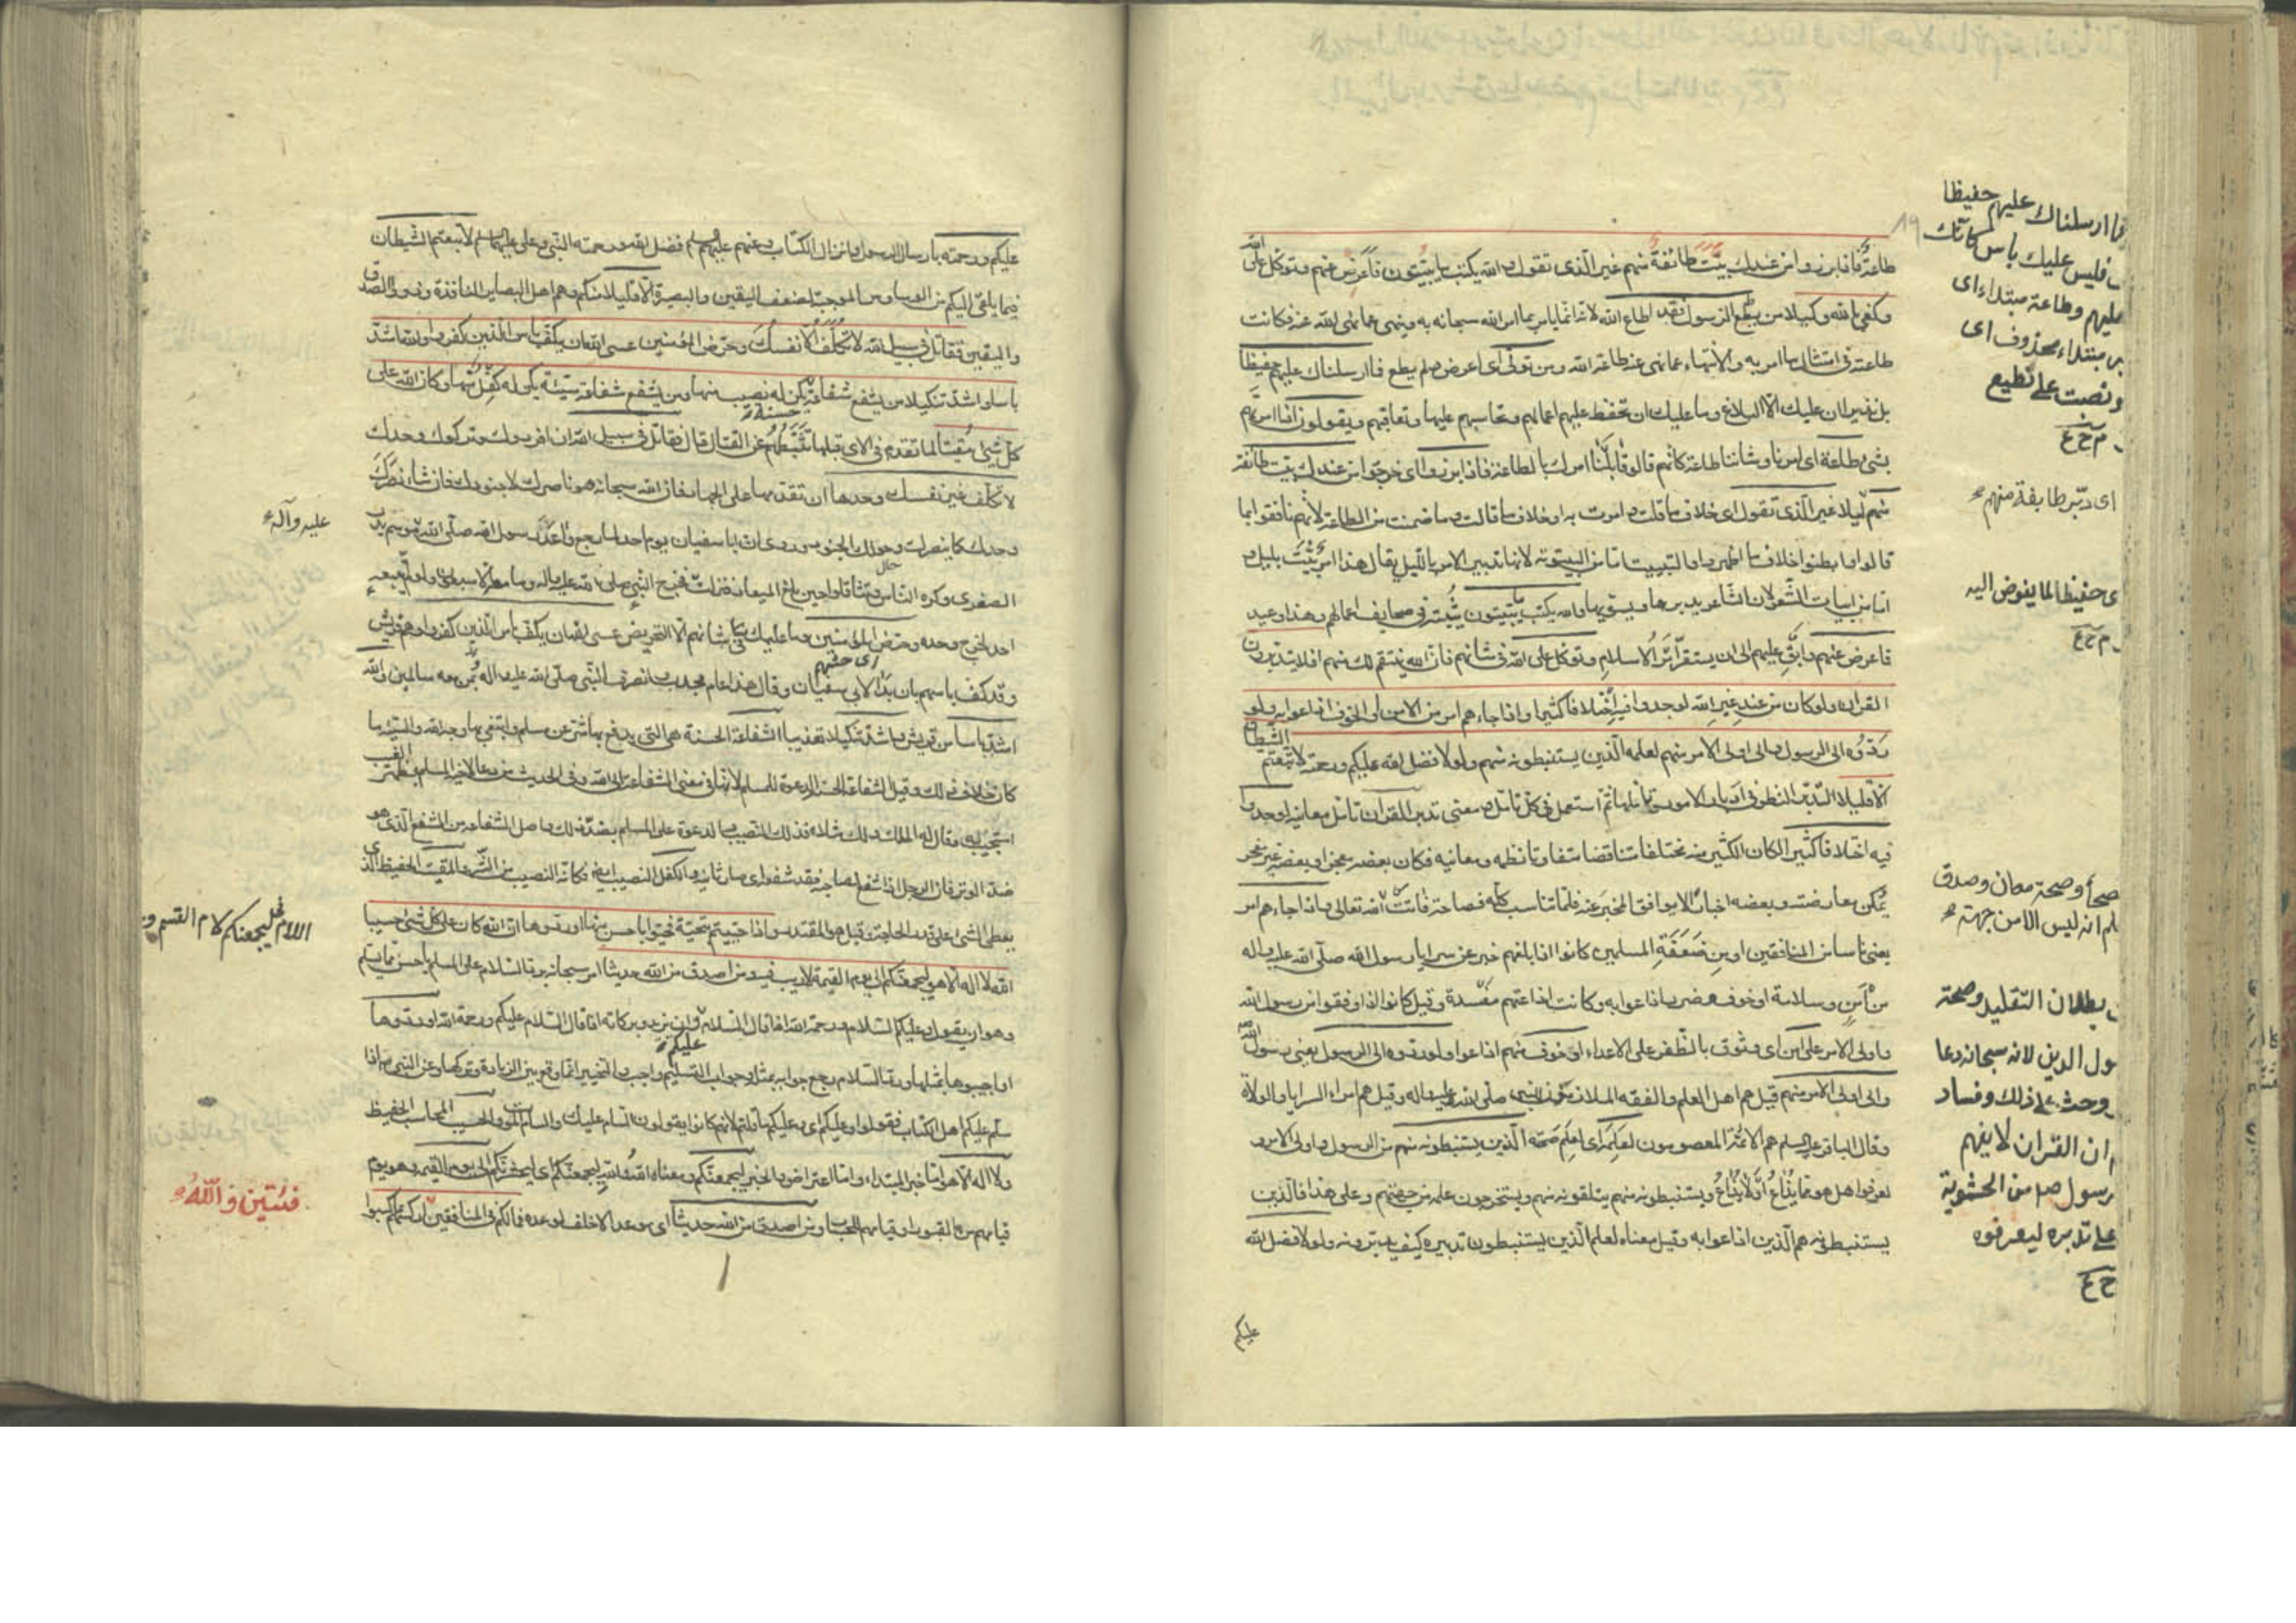 طاعة فاذا برزوا من عندك بيّت طائفة منهم غير الّذى تقول والله يكتب ما يبيّتون فاعرض عنهم وتوكل على الله
وكفى بالله وكيلا من يطع الرسول فقد اطاع الله لانّه انما يامر بما امر الله سبحانه به وينهى عما نهى الله عنه فكانت
طاعته فى امتثال ما امر به والانتهاء عما نهى عنه طاعة الله ومن تولّى اى اعرض ولم يطع فما ارسلناك عليهم حفيظا
بل نذيرا ان عليك الّا البلاغ وما عليك ان تحفظ عليهم اعمالهم وتحاسبهم عليها وتعاقبهم ويقولون اذا امرتهم
بشئ طاعة اى امرنا وشاننا طاعة كانهم قالوا قابلنا امرك بالطاعة فاذا برزوا اى خرجوا من عندك بيّت طائفة
منهم ليلا غير الّذى تقول اى خلاف ما قلت وامرت به او خلاف ما قالت وما ضمنت من الطاعة لانهم نافقوا بما
قالوا وابطنوا خلاف ما اظهروا والتبييت امّا من البيتوتة لانها تدبير الامر بالليل يقال هذا امر بُيّت بليل و
امّا من ابيات الشّعر لان الشاعر يدبرها ويسويها والله يكتب ما يبيّتون يثبته فى صحايف اعمالهم وهذا وعيد
فاعرض عنهم وابق عليهم الى ان يستقرّ امر الاسلام وتوكل على الله فى شانهم فانّ الله ينتقم لك منهم افلا يتدبّرون
القران ولو كان من عند غير الله لوجدوا فيه اختلافا كثيرا واذا جاءهم امر من الامن او الخوف اذاعوا به ولو
ردّوه الى الرسول والى اولى الامر منهم لعلمه الّذين يستنبطونه منهم ولولا فضل الله عليكم ورحمته لاتّبعتم الشيطان
الّا قليلا التّدبّر النظر فى ادبار الامور وتاملها ثم استعمل فى كل تامل ومعنى تدبر القران تامل معانيه لوجدوا
فيه اختلافا كثيرا لكان الكثير منه مختلفا متناقضا متفاوتا نظمه ومعانيه فكان بعضه معجزا وبعضه غير معجز
يمكن معارضته وبعضه اخبارا لا يوافق المخبر عنه فلما تناسب كلّه فصاحة فاتت الله تعالى واذا جاءهم امر
يعنى ناسا من المنافقين او من ضعفة المسلمين كانوا اذا بلغهم خبر عن سرايا رسول الله صلّى الله عليه واله
من امن وسلامة او خوف وضرر اذاعوا به وكانت اذاعتهم مفسدة وقيل كانوا اذا وقفوا من رسول الله
واولى الامر على امن اى وثوق بالظفر على الاعداء او خوف منهم اذاعوا ولو ردوه الى الرسول يعنى رسول الله
والى اولى الامر منهم قيل هم اهل العلم والفقه الملازمون للنبى صلّى الله عليه واله وقيل هم امراء السرايا والولاة
وقال الباقر عليه السلم هم الائمّة المعصومون لعلمه اى لعلم صحّته الّذين يستنبطونه منهم من الرسول واولى الامر و
لعرفوا هل هو مما يُذاع او لا يُذاع ويستنبطونه منهم يتلقونه منهم ويستخرجون علمه من جهتهم وعلى هذا فالّذين
يستنبطونه هم الّذين اذاعوا به وقيل معناه لعلم الّذين يستنبطون تدبيره كيف يدبرونه ولولا فضل الله
عليكم
١٩
فما ارسلناك عليهم حفيظا
فليس عليك باس كانك
عليهم وطاعة مبتداء اى
مبتداء محذوف اى
ونصبت على نطيع
م ح ع
اى دبّر طايفة منهم
حفيظا لما يفوض اليه
م ح ع
وصحة معان وصدق
انه ليس الا من جهته
بطلان التقليد وصحة
الدين لانه سبحانه دعا
وحث على ذلك وفساد
ان القران لا يفهم
من الحشوية
على تدبره ليعرفوه
ح ع
عليكم ورحمته بارسال الرسول وانزال الكتاب وعنهم عليهم السلم فضل الله ورحمته النبى وعلى عليهما السلم لاتبعتم الشيطان
فيما يلقى اليكم من الوساوس الموجبة لضعف اليقين والبصيرة الّا قليلا منكم وهم اهل البصاير النافذة وذوو الصدق
واليقين فقاتل فى سبيل الله لا تُكلّف الّا نفسك وحرّض المؤمنين عسى الله ان يكفّ باس الّذين كفروا والله اشدّ
باسا واشدّ تنكيلا من يشفع شفاعة حسنة يكن له نصيب منها ومن يشفع شفاعة سيّئة يكن له كفل منها وكان الله على
كلّ شئ مقيتا لما تقدم فى الاى قبلها تثبّطهم عن القتال قال فقاتل فى سبيل الله ان افردوك وتركوك وحدك
لا تكلّف غير نفسك وحدها ان تقدمها على الجهاد فانّ الله سبحانه هو ناصرك لا جنودك فان شاء نصرك
وحدك كما ينصرك وحولك الجنود وروى ان ابا سفيان يوم احد لما رجع واعد رسول الله صلّى الله موسم بدر
الصغرى وكره الناس وتثاقلوا حين بلغ الميعاد فنزلت فخرج النبى صلى الله عليه واله وما معه الا سبعون ولو لم يتبعه
احد لخرج وحده وحرّض المؤمنين وما عليك فى شانهم الّا التحريض عسى الله ان يكفّ باس الّذين كفروا وهم قريش
وقد كفّ باسهم بان بدا لابى سفيان وقال هذا عام مجدب وانصرف النّبى صلّى الله عليه واله بمن معه سالمين والله
اشدّ باسا من قريش واشدّ تنكيلا تعذيبا الشفاعة الحسنة هى التى يدفع بها شر عن مسلم وابتغى بها وجه الله والسيئة ما
كان خلاف ذلك وقيل الشفاعة الحسنة الدعوة للمسلم لانها فى معنى الشفاعة الى الله وفى الحديث من دعا لاخيه المسلم بظهر الغيب
استجيب له وقال له الملك ولك مثلاه فذلك النصيب والدعوة على المسلم بضدّ ذلك واصل الشفاعة من الشفع الّذى هو
ضدّ الوتر فان الرجل اذا شفع لصاحبه فقد شفعه اى صار ثانيه والكفل النصيب ايضا وكانّه النصيب من الشّر والمقيت الحفيظ الّذى
يعطى الشئ على قدر الحاجة وقيل هو المقتدر واذا حيّيتم بتحيّة فحيّوا باحسن منها او ردّوها انّ الله كان على كلّ شئ حسيبا
الله لا اله الّا هو ليجمعنّكم الى يوم القيمة لا ريب فيه ومن اصدق من الله حديثا امر سبحانه برد السّلام على المسلم باحسن مما سلم
وهو ان يقول وعليكم السّلام ورحمة الله اذا قال السّلام عليكم وان يزيد وبركاته اذا قال السّلام عليكم ورحمة الله او ردّوها
او اجيبوها بمثلها وردّ السّلام رجع جوابه بمثله وجواب التسليم واجب والتخيير انما وقع بين الزيادة وتركها وعن النبى ص اذا
سلّم عليكم اهل الكتاب فقولوا وعليكم اى وعليكم ما قلتم لانهم كانوا يقولون السّام عليك والسام الموت والحسيب المحاسب الحفيظ
ولا اله الّا هو امّا خبر المبتداء وامّا اعتراض والخبر ليجمعنّكم ومعناه الله والله ليجمعنّكم اى ليحشرنّكم الى يوم القيمة وهو يوم
قيامهم من القبور او قيامهم للحساب ومن اصدق من الله حديثا اى موعدا لا خلف لوعده فما لكم فى المنافقين اركسهم بما كسبوا
عليه وآله
اللام فى ليجمعنكم لام القسم و
فئتين والله